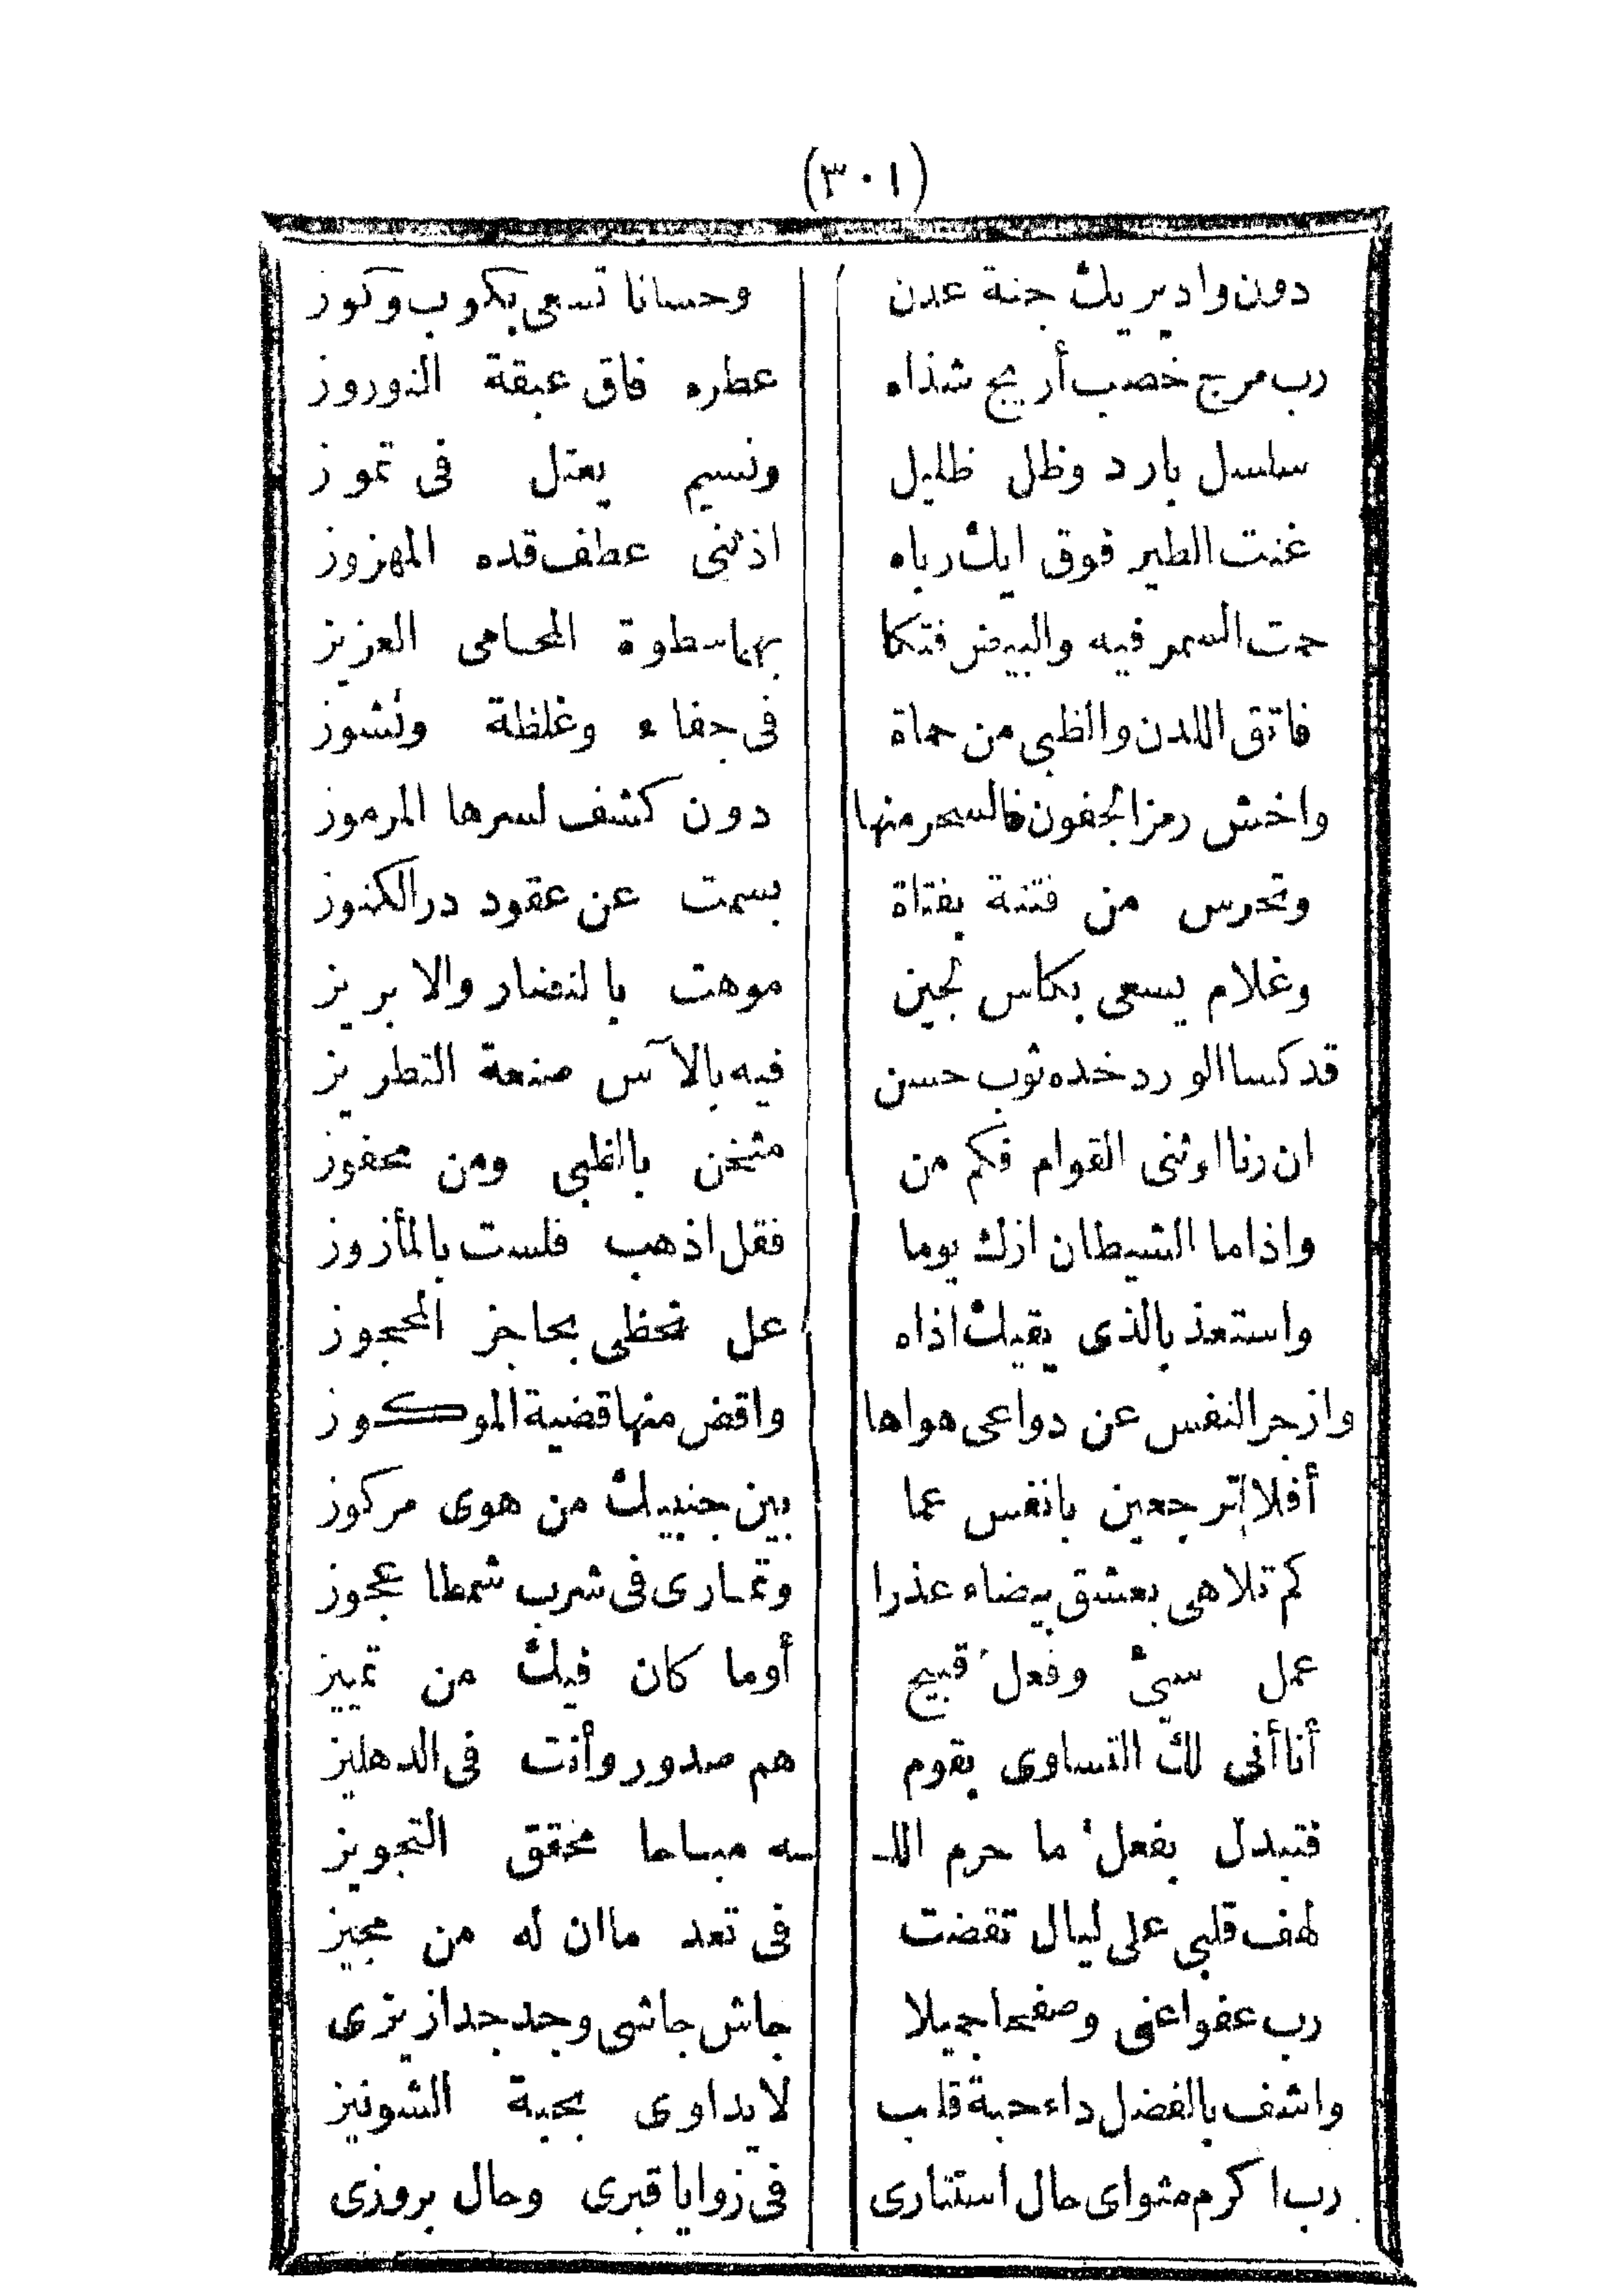 (٣٠١)
دون واد يريك جنة عدن وحسانا تسعى بكوب وكوز
رب مرج خصب أريج شذاه عطره فاق عبقة النوروز
سلسل بارد وظل ظليل ونسيم يعتل فى تموز
غنت الطير فوق ايك رباه اذ ثنى عطف قده المهزوز
حمت السمر فيه والبيض فتكا بهما سطوة المحامى العزيز
فاتق اللدن والظبى من حماة فى جفاء وغلظة ونشوز
واخش رمز الجفون فالسحر منها دون كشف لسرها المرموز
وتحرس من فتنة بفتاة بسمت عن عقود در الكنوز
وغلام يسعى بكاس لجين موهت بالنضار والابريز
قد كسا الورد خده ثوب حسن فيه بالآس صنعة التطريز
ان رنا او ثنى القوام فكم من مثخن بالظبى ومن محفوز
واذا ما الشيطان ازك يوما فقل اذهب فلست بالمأزوز
واستعذ بالذى يقيك اذاه عل تحظى بحاجز المحجوز
وازجر النفس عن دواعى هواها واقض منها قضية الموكوز
أفلا ترجعين يا نفس عما بين جنبيك من هوى مركوز
كم تلاهى بعشق بيضاء عذرا وتمارى فى شرب شمطا عجوز
عمل سئ وفعل قبيح أوما كان فيك من تمييز
أنا أنى لك التساوى بقوم هم صدور وأنت فى الدهليز
فتبدل بفعل ما حرم اللـ ـه مباحا محقق التجويز
لهف قلبى على ليال تقضت فى تعد ما ان له من مجيز
رب عفوا عنى وصفحا جميلا جاش جاشى وجد جدا ازيزى
واشف بالفضل داء حبة قلب لا يداوى بحبة الشونيز
رب اكرم مثواى حال استتارى فى زوايا قبرى وحال بروزى